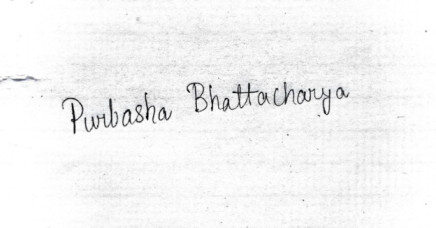 Purbasha Bhattacharya